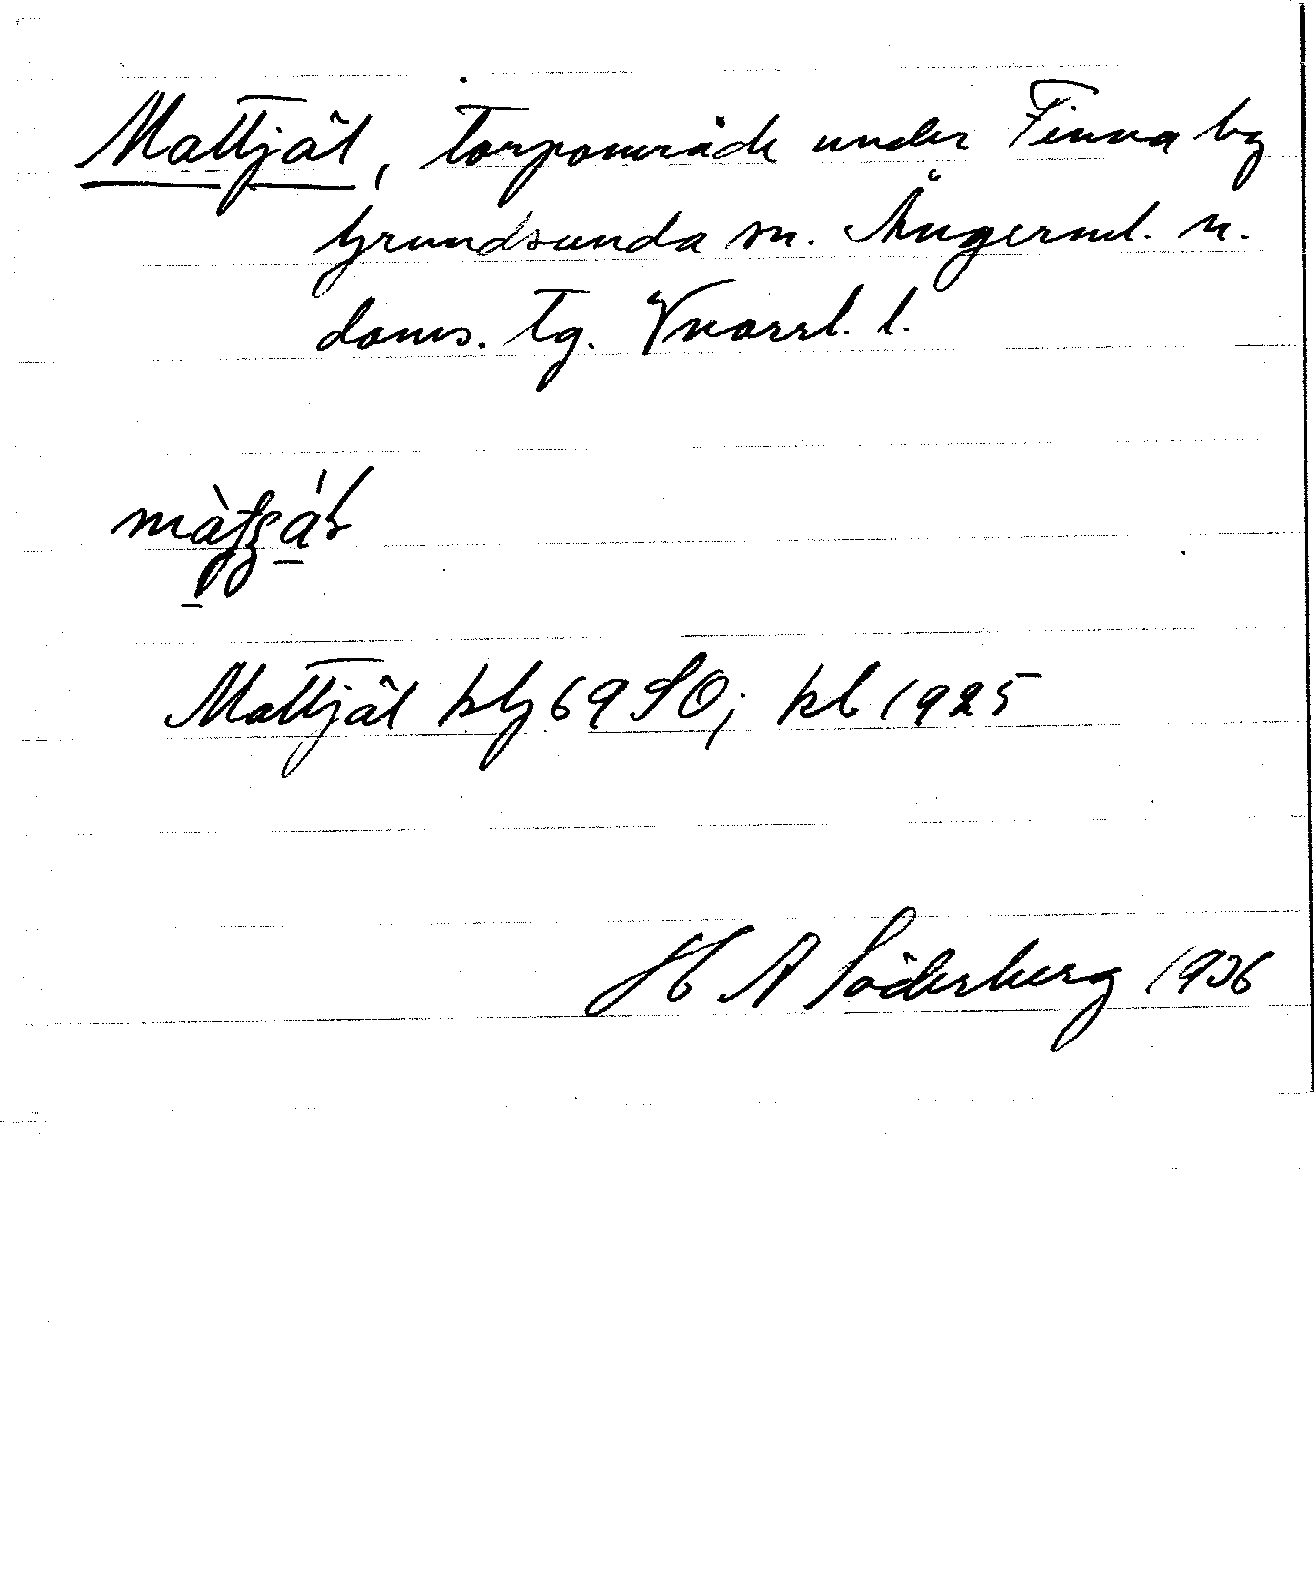 Mattjäl, torpområde under Finna by
Grundsunda sn. Ångerml. n.
doms. tg. Vnorrl. l.
Mattjäl kbl 69 SO; kb 1925
H A Söderberg 1936